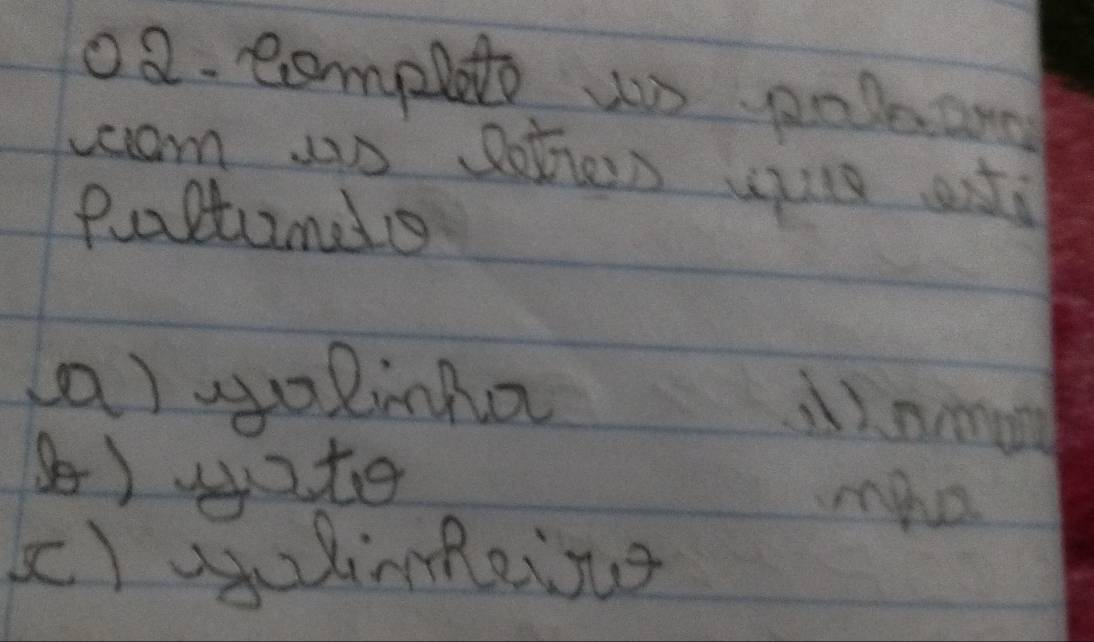 02- Complete as palavra
com as letras que esti
faltando
a) galinha
b) gato
nha
c) galinheiro